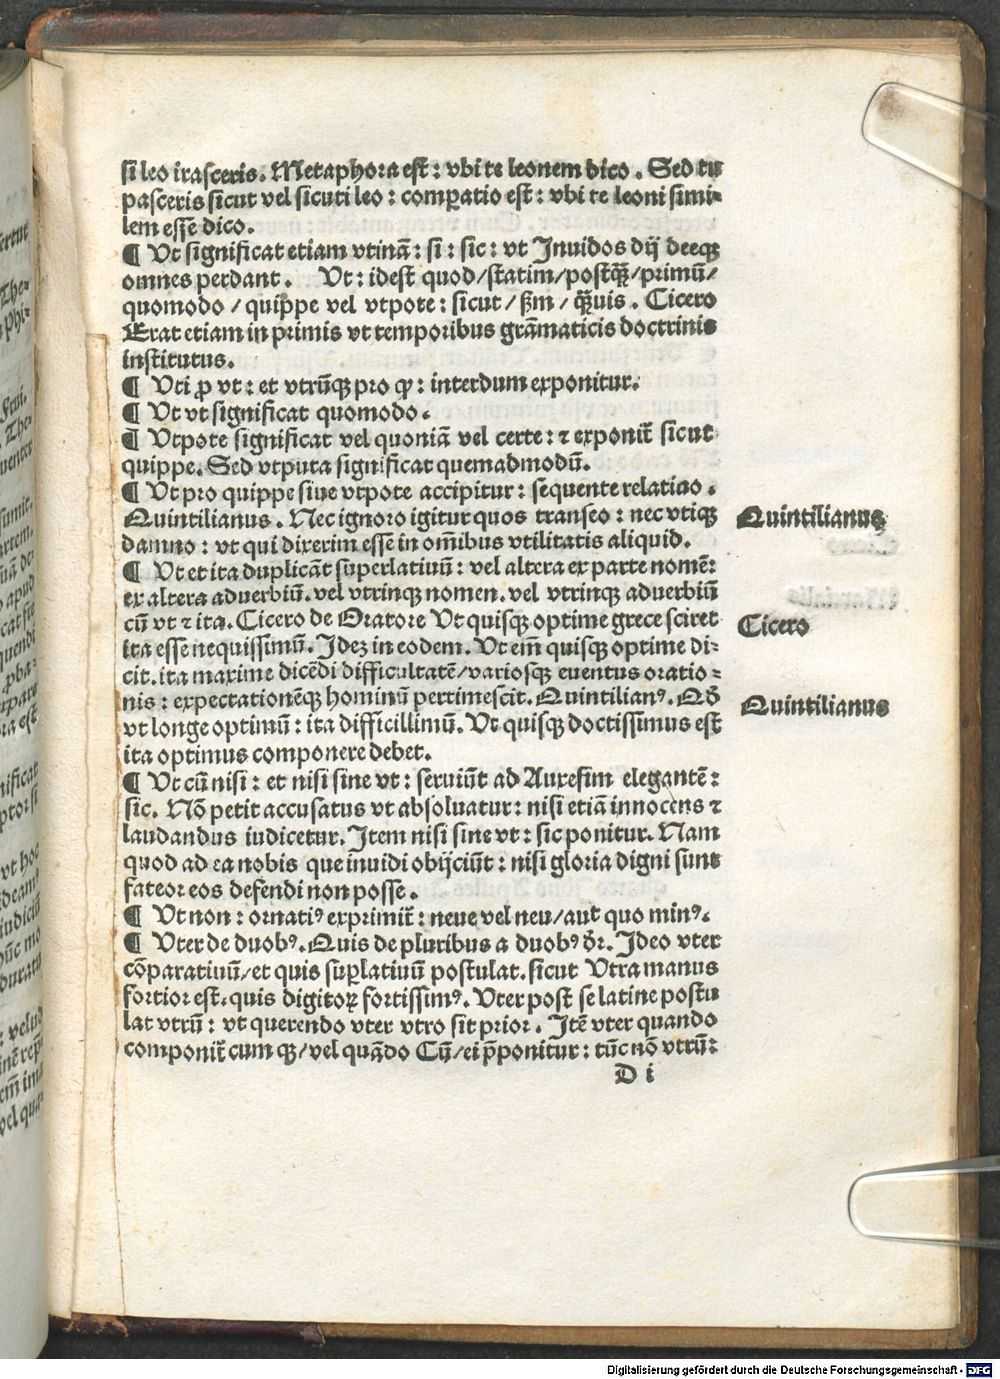 si leo irasceris. Metaphora est: vbi te leonem dico. Sed tu
pasceris sicut vel sicuti leo: compatio est: vbi te leoni simi-
lem esse dico.
¶ Vt significat etiam vtinā: si: sic: vt Inuidos dij deeqꝫ
omnes perdant. Vt: idest quod/statim/postq̄ꝫ/primū/
quomodo/quippe vel vtpote: sicut/ẜm/q̄ꝫuis. Cicero
Erat etiam in primis vt temporibus grāmaticis doctrinis
institutus.
¶ Vti ꝓ vt: et vtrūqꝫ pro ꝙ: interdum exponitur.
¶ Vt vt significat quomodo.
¶ Vtpote significat vel quoniā vel certe: ⁊ exponit̄ sicut
quippe. Sed vtputa significat quemadmodū.
¶ Vt pro quippe siue vtpote accipitur: sequente relatiuo.
Quintilianus. Nec ignoro igitur quos transeo: nec vtiqꝫ
damno: vt qui dixerim esse in om̄ibus vtilitatis aliquid.
¶ Vt et ita duplicāt superlatiuū: vel altera ex parte nomē:
ex altera aduerbiū. vel vtrinqꝫ nomen. vel vtrinqꝫ aduerbiū
cū vt ⁊ ita. Cicero de Oratore Vt quisqꝫ optime grece sciret
ita esse nequissimū. Idez in eodem. Vt em̄ quisqꝫ optime di-
cit. ita maxime dicēdi difficultatē/variosqꝫ euentus oratio-
nis: expectationēqꝫ hominū pertimescit. Quintilianꝰ. Mō
vt longe optimū: ita difficillimū. Vt quisqꝫ doctissimus est
ita optimus componere debet.
¶ Vt cū nisi: et nisi sine vt: seruiūt ad Auxesim elegantē:
sic. Nō petit accusatus vt absoluatur: nisi etiā innocens ⁊
laudandus iudicetur. Item nisi sine vt: sic ponitur. Nam
quod ad ea nobis que inuidi obijciūt: nisi gloria digni sunt
fateor eos defendi non posse.
¶ Vt non: ornatiꝰ exprimit̄: neue vel neu/aut quo minꝰ.
¶ Vter de duobꝰ. Quis de pluribus a duobꝰ dr̄. Ideo vter
cōparatiuū/et quis suꝑlatiuū postulat. sicut Vtra manus
fortior est. quis digitoꝝ fortissimꝰ. Vter post se latine postu
lat vtrū: vt querendo vter vtro sit prior. Itē vter quando
componit̄ cum qꝫ/vel quādo Cū/ei p̄ponitur: tūc nō vtrū:
D i
Quintilianus
Cicero
Quintilianus
Digitalisierung gefördert durch die Deutsche Forschungsgemeinschaft - DFG